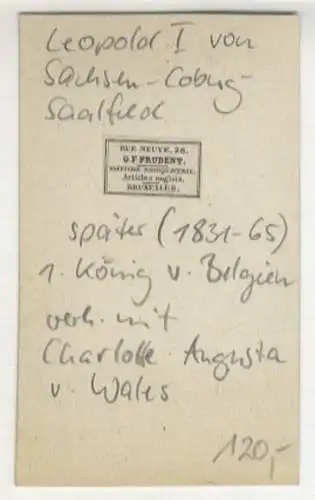 Leopold I von
Sachsen-Coburg-
Saalfeld
RUE NEUVE, 26.
G F PRUDENT,
Articles anglais,
BRUXELLES.
später (1831-65)
1. König v. Belgien
verh. mit
Charlotte Augusta
v. Wales
120,-